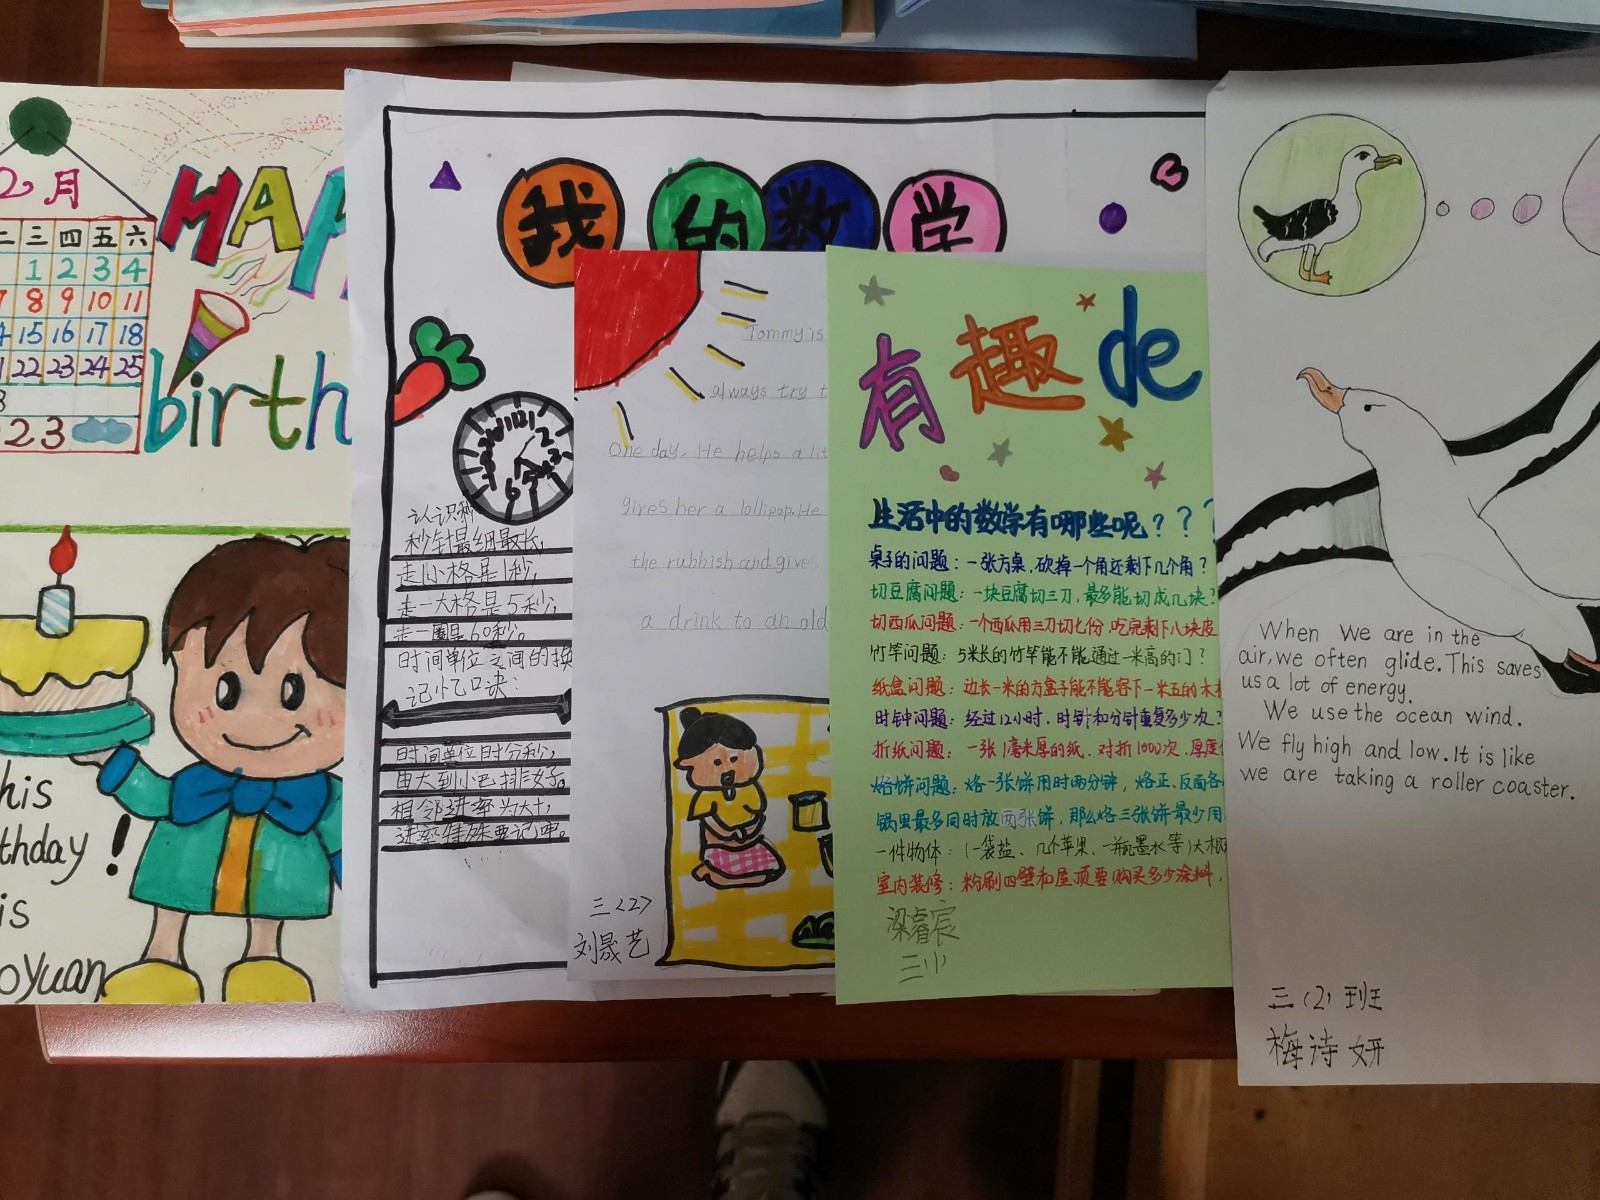 2月
二 三 四 五 六
1 2 3 4
7 8 9 10 11
4 15 16 17 18
1 22 23 24 25
8
23
HAP
birth
his
thday!
is
oyuan
我的数学
12
认识秒
秒针最细最长,
走1小格是1秒,
走一大格是5秒;
走一圈是60秒。
时间单位之间的换
记忆口诀:
时间单位时分秒,
由大到小巴排好。
相邻进率为六十,
进率特殊要记牢。
Tommy is
always try t
One day. He helps a lit
gives her a lollipop. He
the rubbish and gives
a drink to an old
三〈2〉
刘晟艺
有趣de
生活中的数学有哪些呢???
桌子的问题:一张方桌,砍掉一个角还剩下几个角?
切豆腐问题:一块豆腐切三刀,最多能切成几块?
切西瓜问题:一个西瓜用三刀切七份,吃完剩下八块皮
竹竿问题:5米长的竹竿能不能通过一米高的门?
纸盒问题:边长一米的方盒子能不能容下一米五的木
时钟问题:经过12小时,时针和分针重复多少次?
折纸问题:一张1毫米厚的纸、对折1000次,厚度
烙饼问题:烙一张饼用时两分钟,烙正、反面各
锅里最多同时放两张饼,那么烙三张饼最少用
一件物体:(一袋盐、几个苹果、一瓶墨水等)大概
室内装修:粉刷四壁和屋顶要购买多少涂料,
梁睿宸
三小
When We are in the
air,we often glide. This saves
us a lot of energy.
We use the ocean wind.
We fly high and low. It is like
we are taking a roller coaster.
三(2)班
梅诗妍